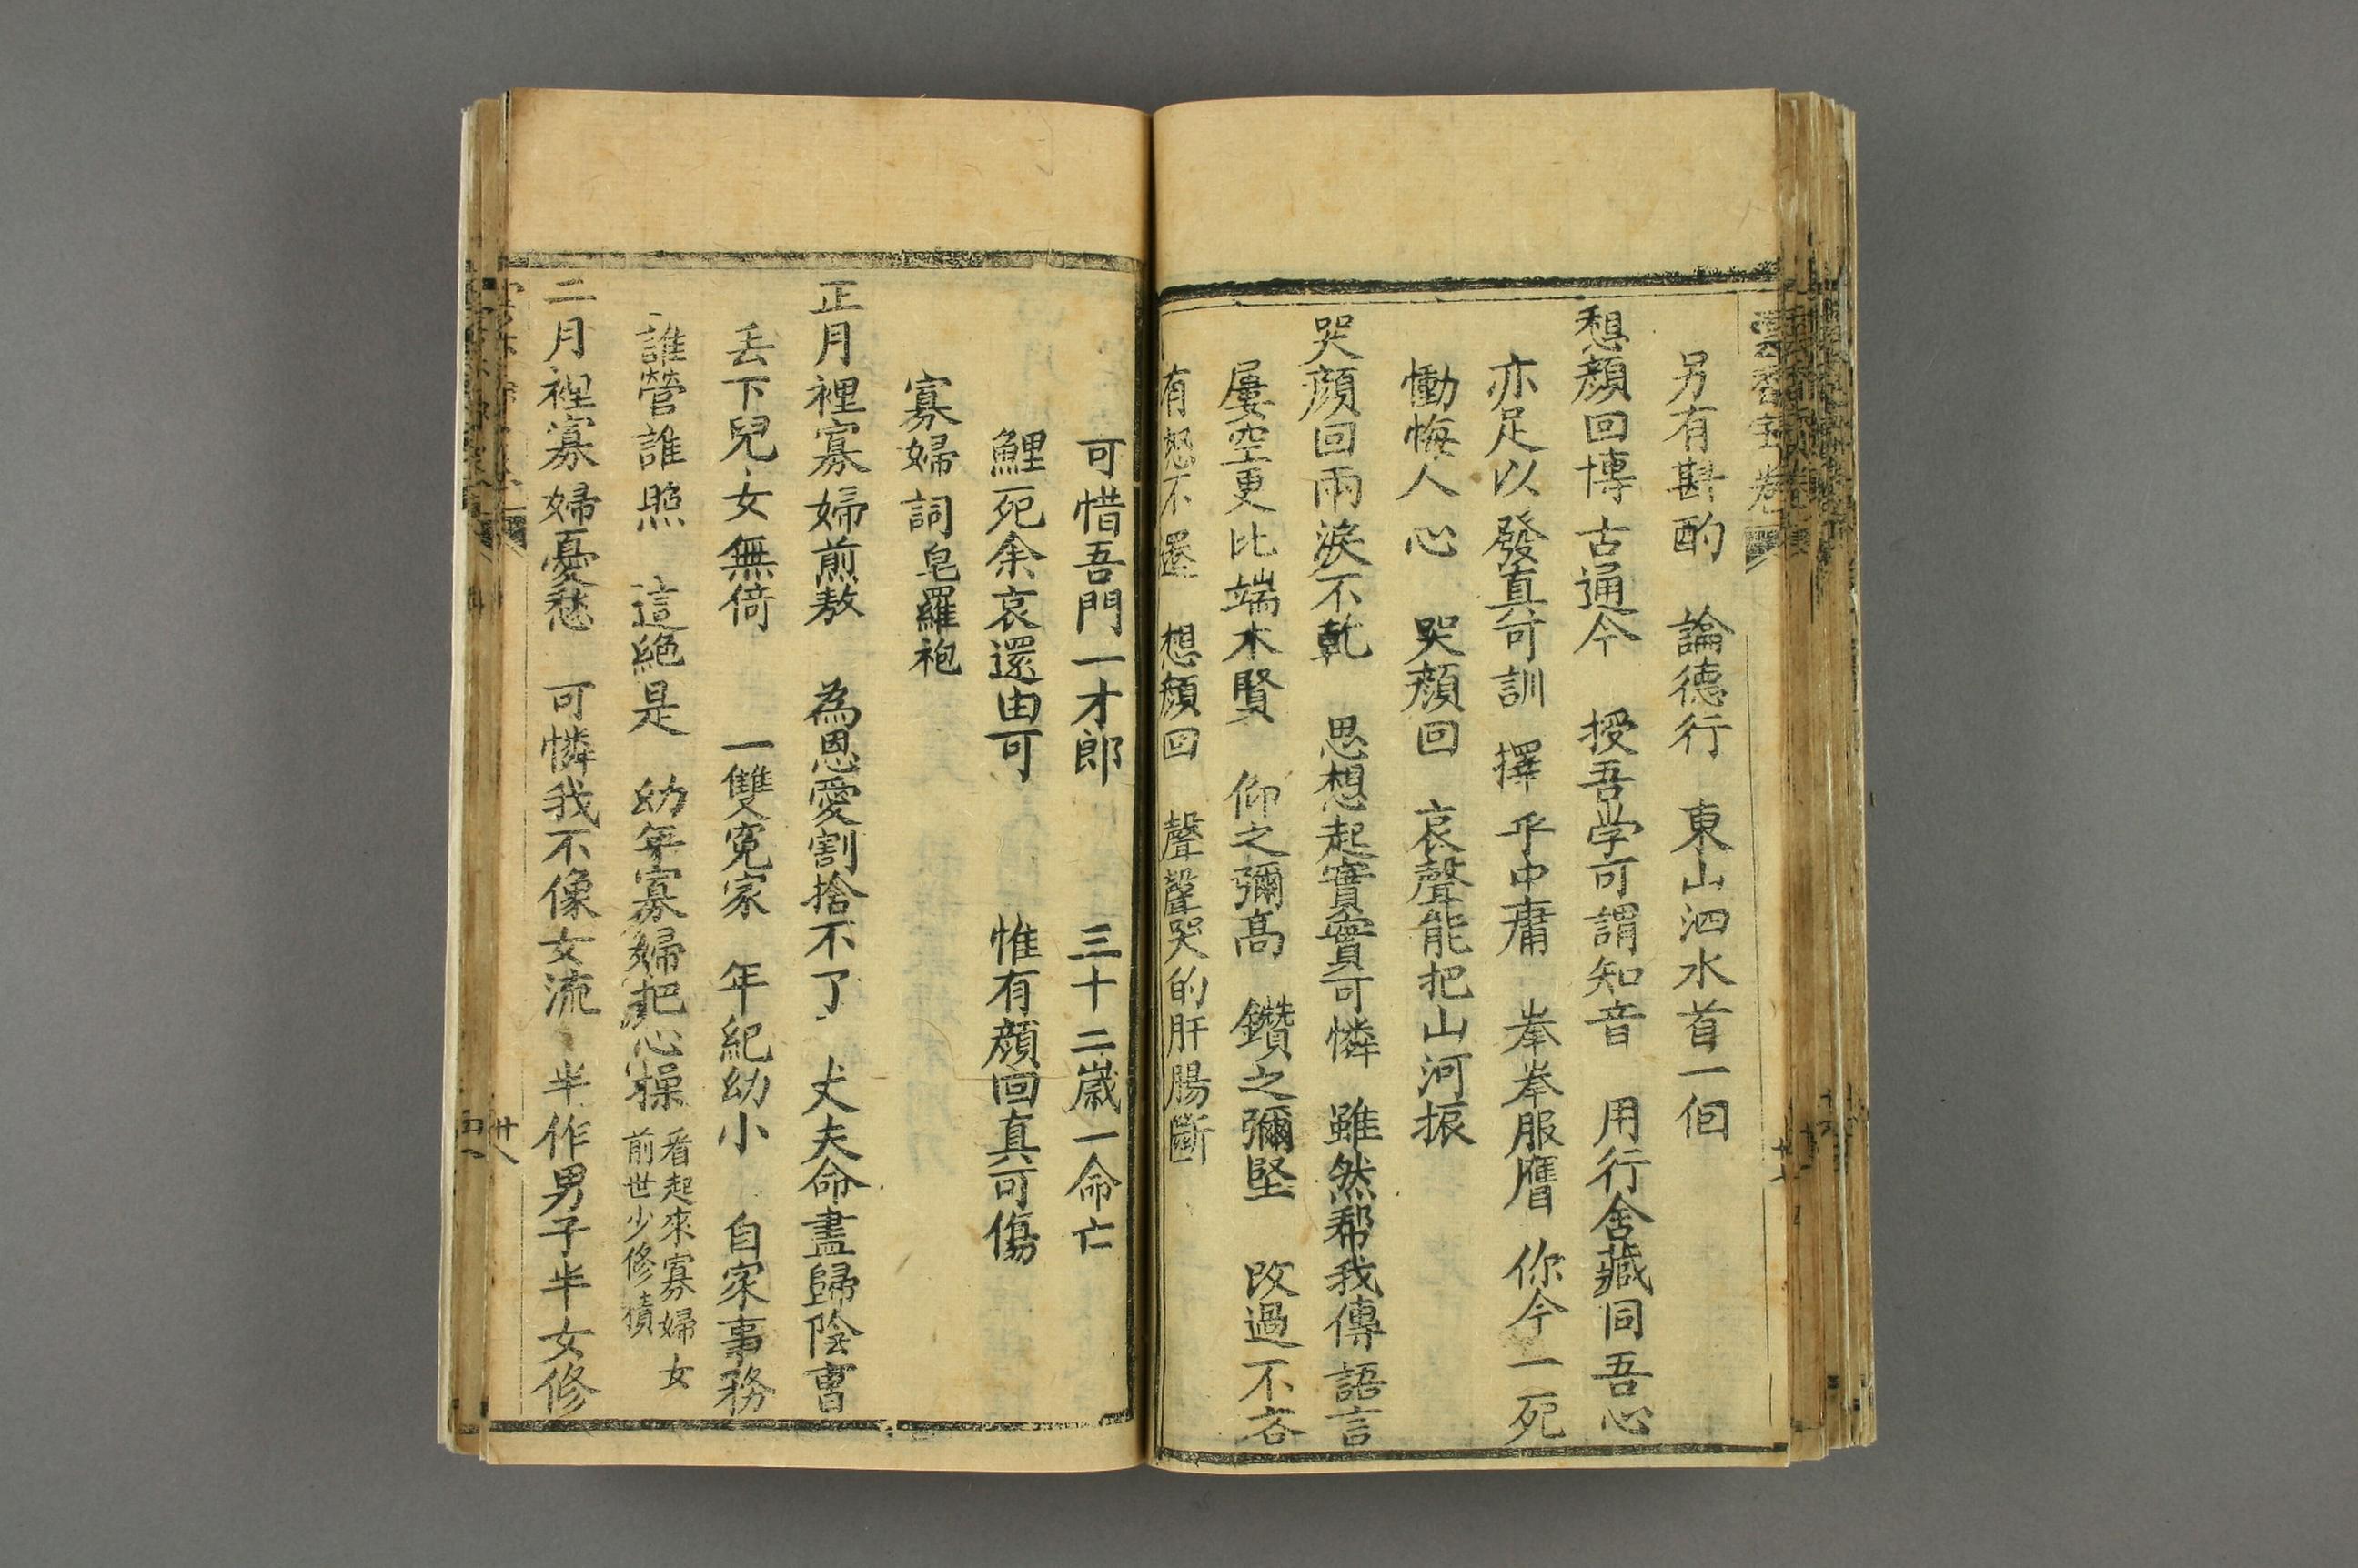 另有斟酌　論德行　東山泗水首一佪
想顔回博古通今　授吾学可謂知音　用行舍藏同吾心
亦足以發真可訓　擇乎中庸　拳拳服膺　你今一死
慟悔人心　哭顔回　哀聲能把山河振
哭顔回兩淚不乾　思想起實實可憐　雖然帮我傳語言
屢空更比端木賢　仰之彌高　鑽之彌堅　改過不吝
有怒不遷　想顔回　聲聲哭的肝腸斷
可惜吾門一才郎　三十二歲一命亡
鯉死余哀還由可　惟有顔回真可傷
寡婦詞 皂羅袍
正月裡寡婦煎熬　為恩愛割捨不了　丈夫命盡歸陰曺
丢下兒女無倚　一雙寃家　年紀幼小　自家事務
誰管誰照　這絕是　幼年寡婦把心操 看起來寡婦女
前世少修積
二月裡寡婦憂愁　可憐我不像女流　半作男子半女修